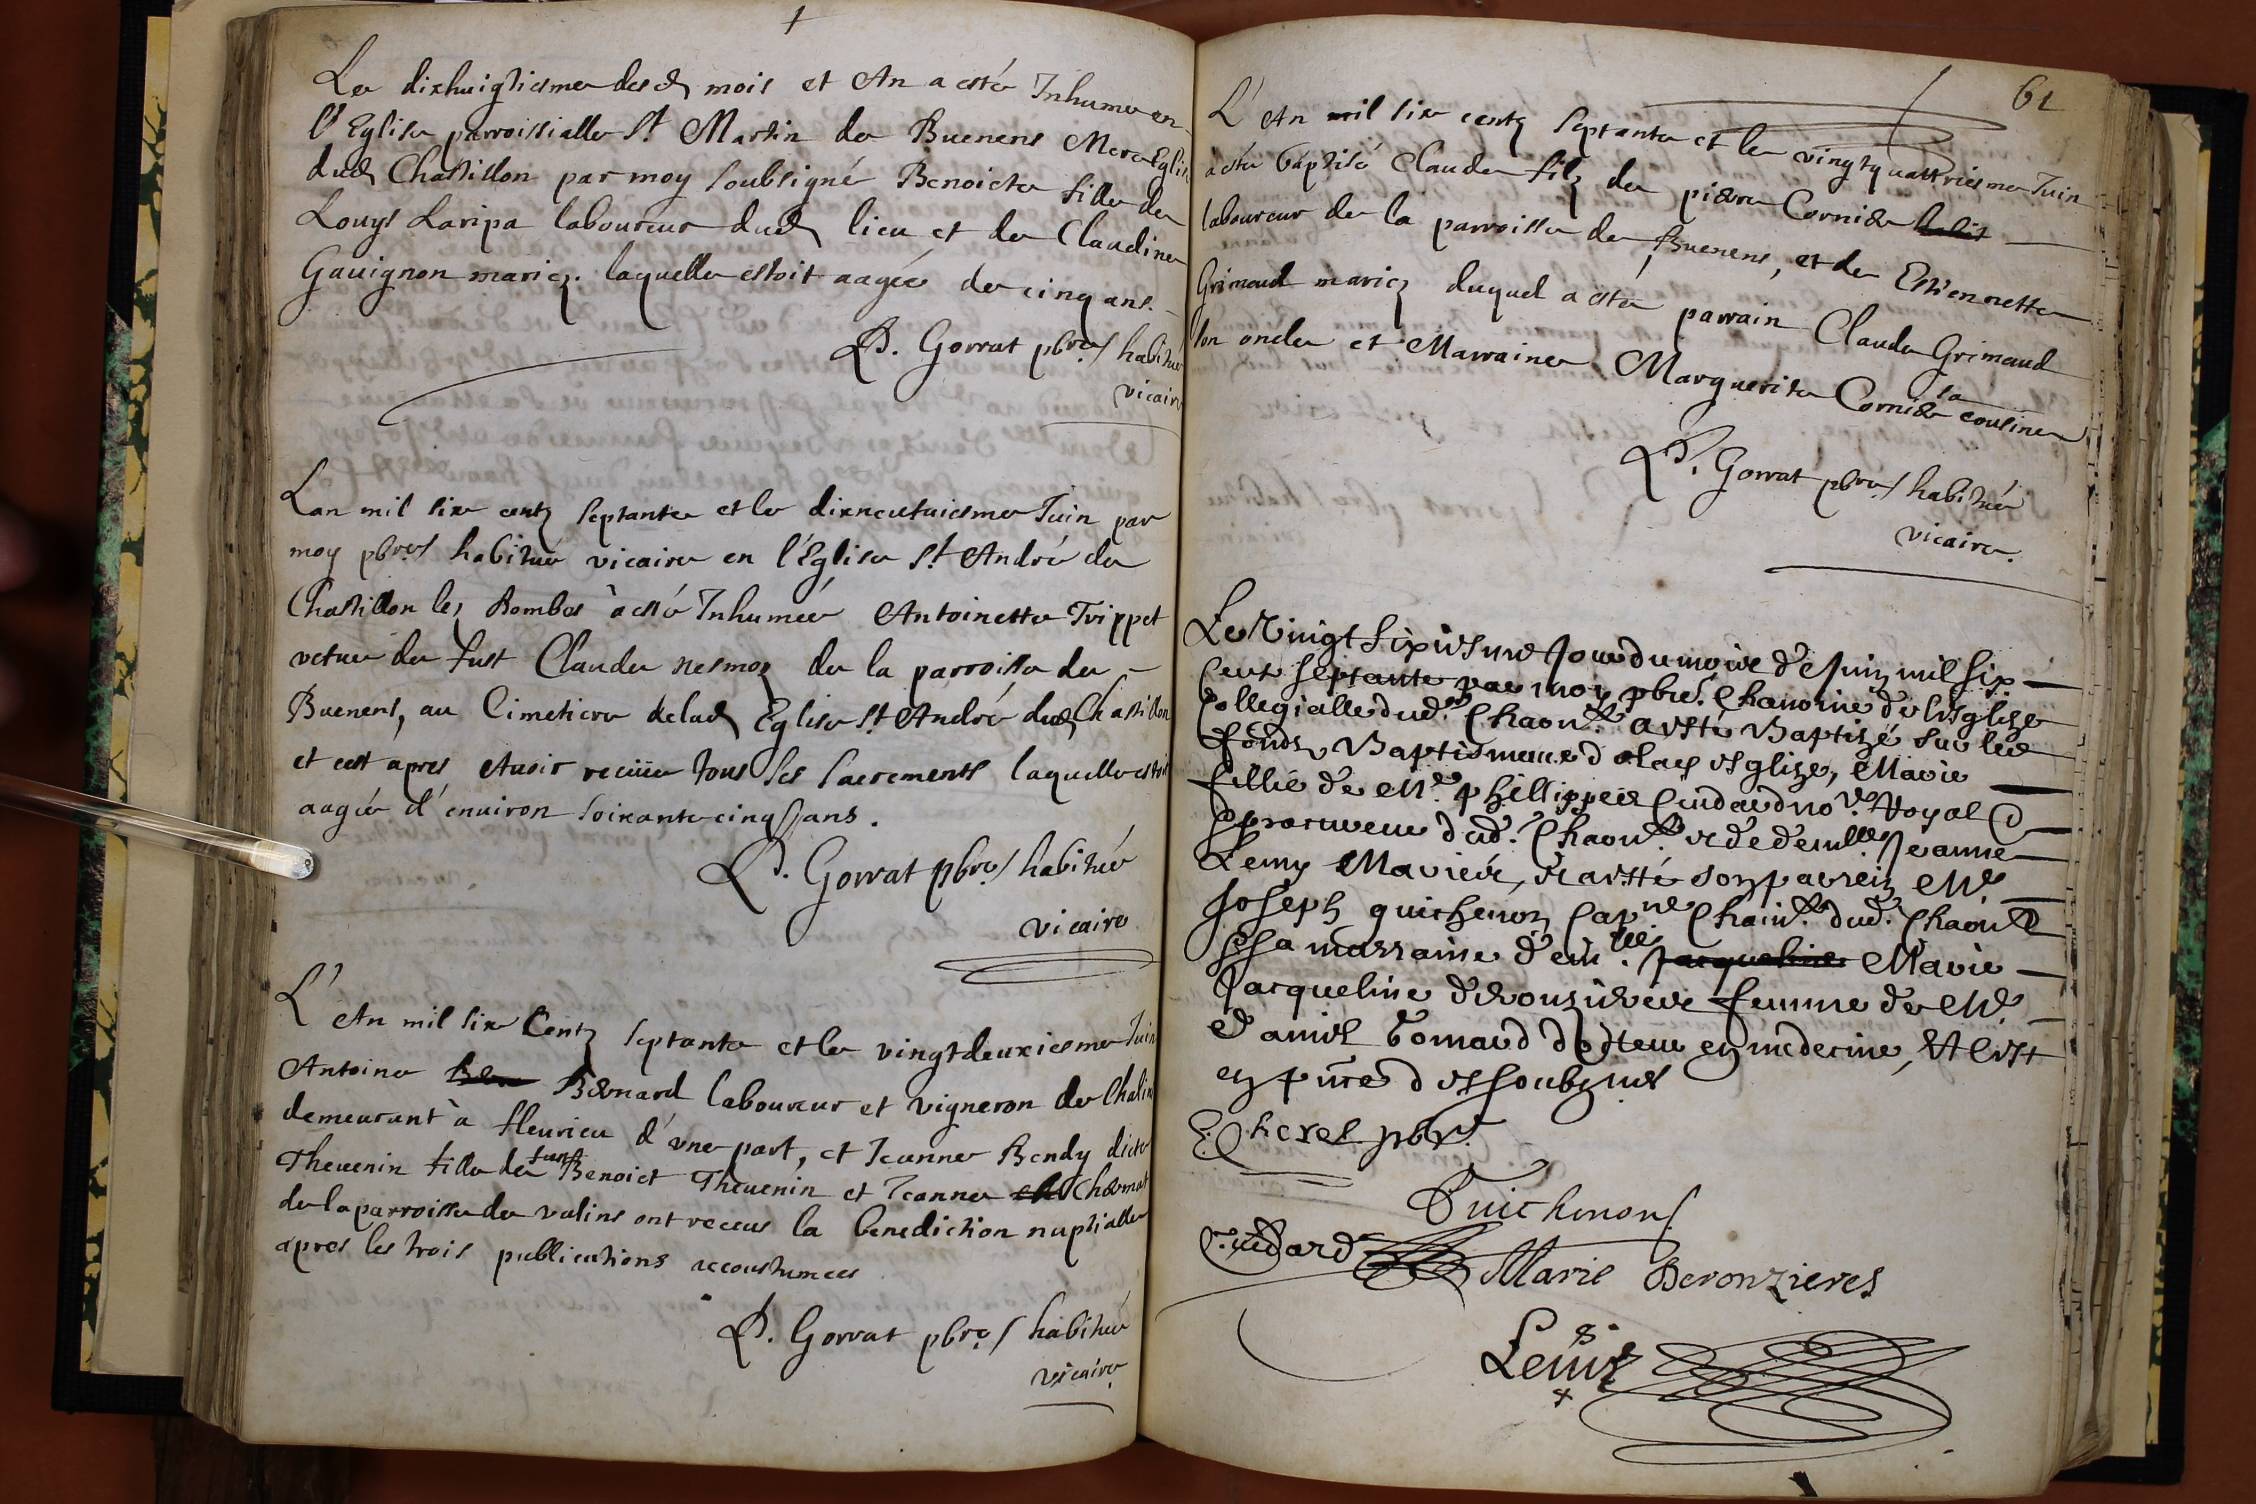 Le dixhuigtiesme desd mois et An a esté Inhumee en
l'Eglise parroissialle St Martin de Buenens Mere Eglise
dud Chastillon par moy soubsigné Benoicte fille de
Louys Laripa laboureur dud lieu et de Claudine
Gauignon mariez. laquelle estoit aagée de cinq ans.
P. Gorrat pbre habitué
vicaire
Lan mil six centz septante et le dixneufuiesme Juin par
moy pbre habitué vicaire en l'Eglise St André de
Chastillon les Dombes à esté Inhumée Antoinette Trippet
vefue de fust Claude nesmoz de la parroisse de
Buenens, au Cimetiere delad Eglise St André dud Chastillon
et cest apres Auoir receüe tous ses sacrements laquelle estoit
aagée d'enuiron soixante cinq ans.
P. Gorrat pbre habitué
vicaire
L'An mil six Centz septante et le vingtdeuxiesme Juin
Antoine Bernard laboureur et vigneron de Chalins
demeurant à fleurieu d'vne part, et Jeanne Bendy dicte
Theuenin fille de fust Benoict Theuenin et Jeanne Chermat
de la parroisse de valins ont receus la benediction nuptialle
apres les trois publications accoustumees
P. Gorrat pbre habitué
vicaire
61
L'An mil six centz septante et le vingtquattriesme Juin
a esté baptisé Claude filz de pierre Cornier
laboureur de la parroisse de Buenens, et de Estiennette
Grimaud mariez duquel a esté parrain Claude Grimaud
son oncle et Marraine Marguerite Cornier sa cousine
P. Gorrat pbre habitué
vicaire.
Le Vingt sixiesme Jour du mois de Juin mil six
cent septante par moy pbre Chanoine de lesglize
Collegialle dud. Chaon a esté Baptizé sur les
fonds Baptismaux de lad esglize, Marie
fillie de Mre phillippes Cuidard no.re Royal &
procureur dud. Chaon & de demlle Jeanne
Lemy Mariés, & a esté son parrein Mre
Joseph guichenon Capne Chain dud. Chaon &
sa marraine demlle Jacqueline Marie
Jacqueline deronzieres femme de Mre
Daniel Comard docteur en medecine, Et cest
en pnce des soubznés
E. Cherel pbre
Guichenon
Cuidard
Marie Deronzieres
Lemy